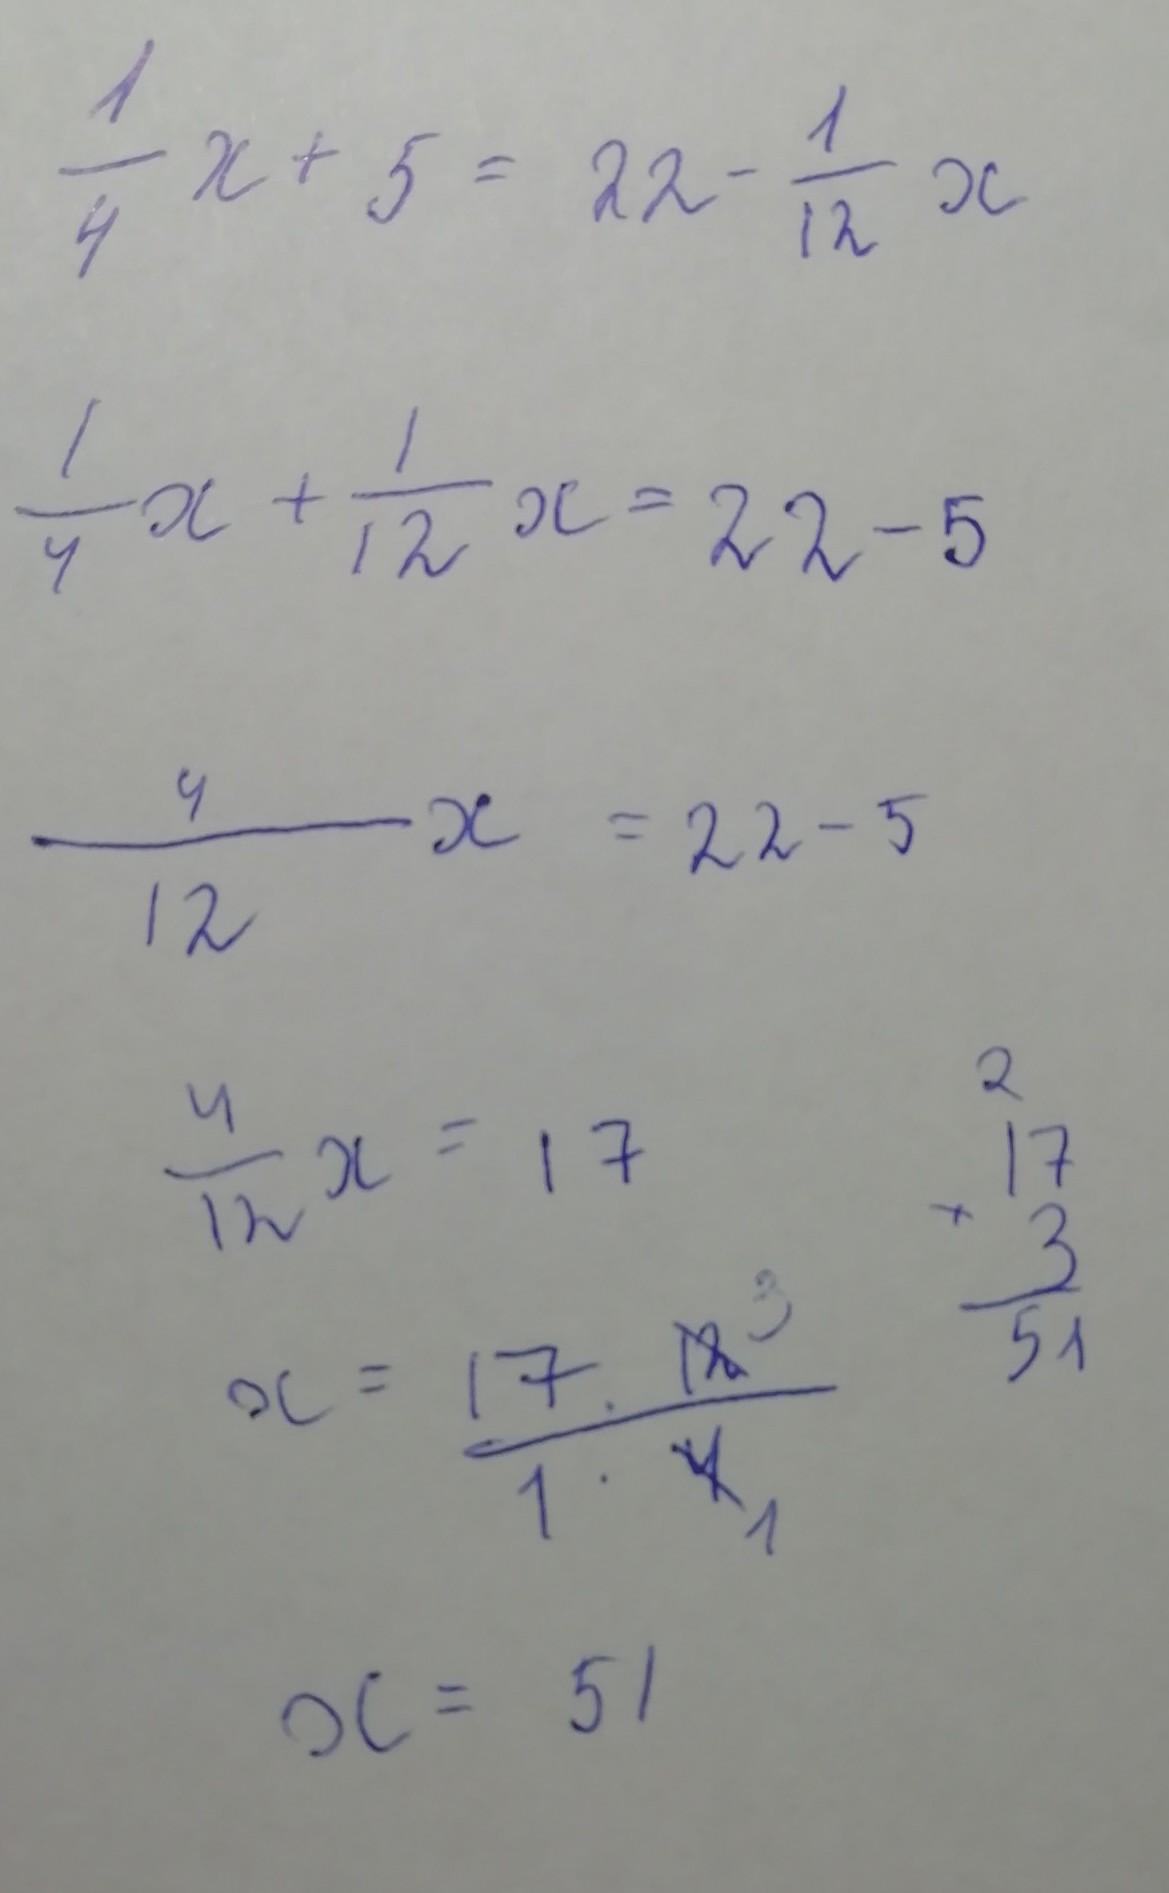 1/4 x + 5 = 22 - 1/12 x
1/4 x + 1/12 x = 22 - 5
4/12 x = 22 - 5
4/12 x = 17
x = 17 · 12 3 / 1 · 4 1
2
17
× 3
51
x = 51